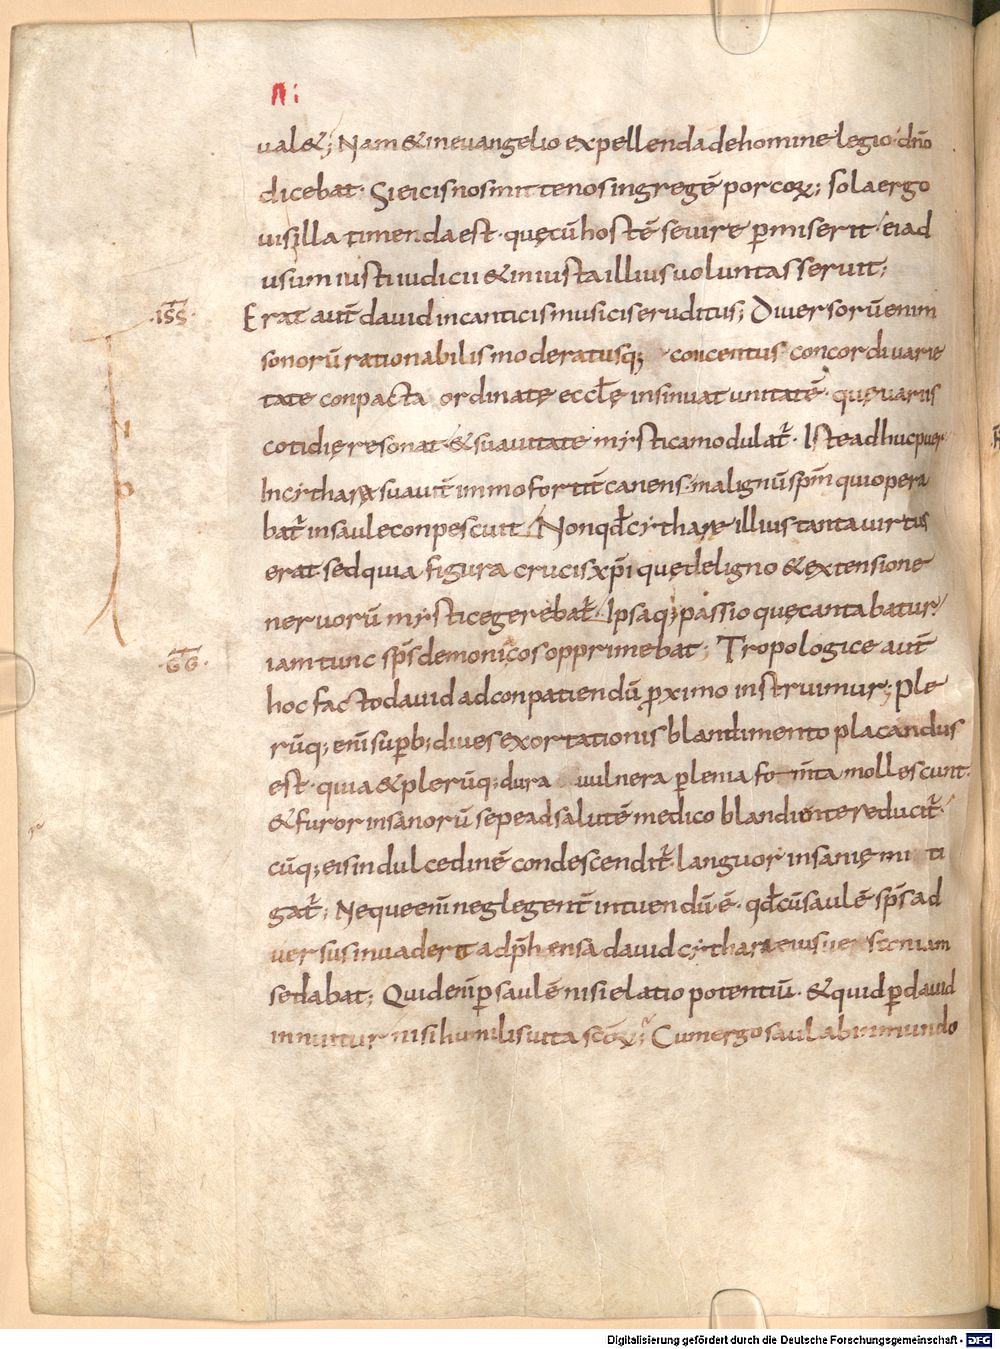 ual&; Nam & in euangelio expellenda de homine legio dño
dicebat· Si eicis nos mitte nos in gregē porcoꝝ; sola ergo
uis illa timenda est· quę cū hostē seuire ꝑmiserit· ei ad
usum iusti iudicii & iniusta illius uoluntas seruit;
·iss· Erat aut̄ dauid in canticis musicis eruditus; Diuersorū enim
sonorū rationabilis moderatusq; concentus concordi uarie
tate conpacta ordinatę eccłę insinuat unitatē· quę uariis
cotidię resonat· & suauitate mystica modulat᷒· Iste adhuc puer
In cythara suauit̄ immo fortit̄ canens· malignū spm̄ qui opera
bat᷒ in saule conpescuit· Non qđ cytharę illius tanta uirtus
erat sed quia figura crucis xp̄i quę de ligno & extensione
neruorū mysticę gerebat᷒· Ipsaq; passio quę cantabatur
·GG· iam tunc sp̄s demonicos opprimebat; Tropologice aut̄
hoc facto dauid ad conpatiendū ꝓximo instruimur; Ple
rūq; eni᷒ suꝑb; diues exortationis blandimento placandus
est· quia & plerūq; dura uulnera ꝑ lenia fomta mollescunt·
& furor insanorū sepe ad salutē medico blandiente reducit᷒·
cūq; eis in dulcedinē condescendit᷒· languor insanię miti
gat᷒; Neque eni᷒ neglegent̄ intuendū·ē· qđ cū saulē sp̄s ad
uersus inuaderet adp̄hensa dauid cythara eius uesaniam
sedabat; Quid eni᷒ ꝑ saulē nisi elatio potentiū· & quid ꝑ dauid
innuitur nisi humilis uita scōꝝ; Cum ergo saul ab inmundo
Digitalisierung gefördert durch die Deutsche Forschungsgemeinschaft - DFG